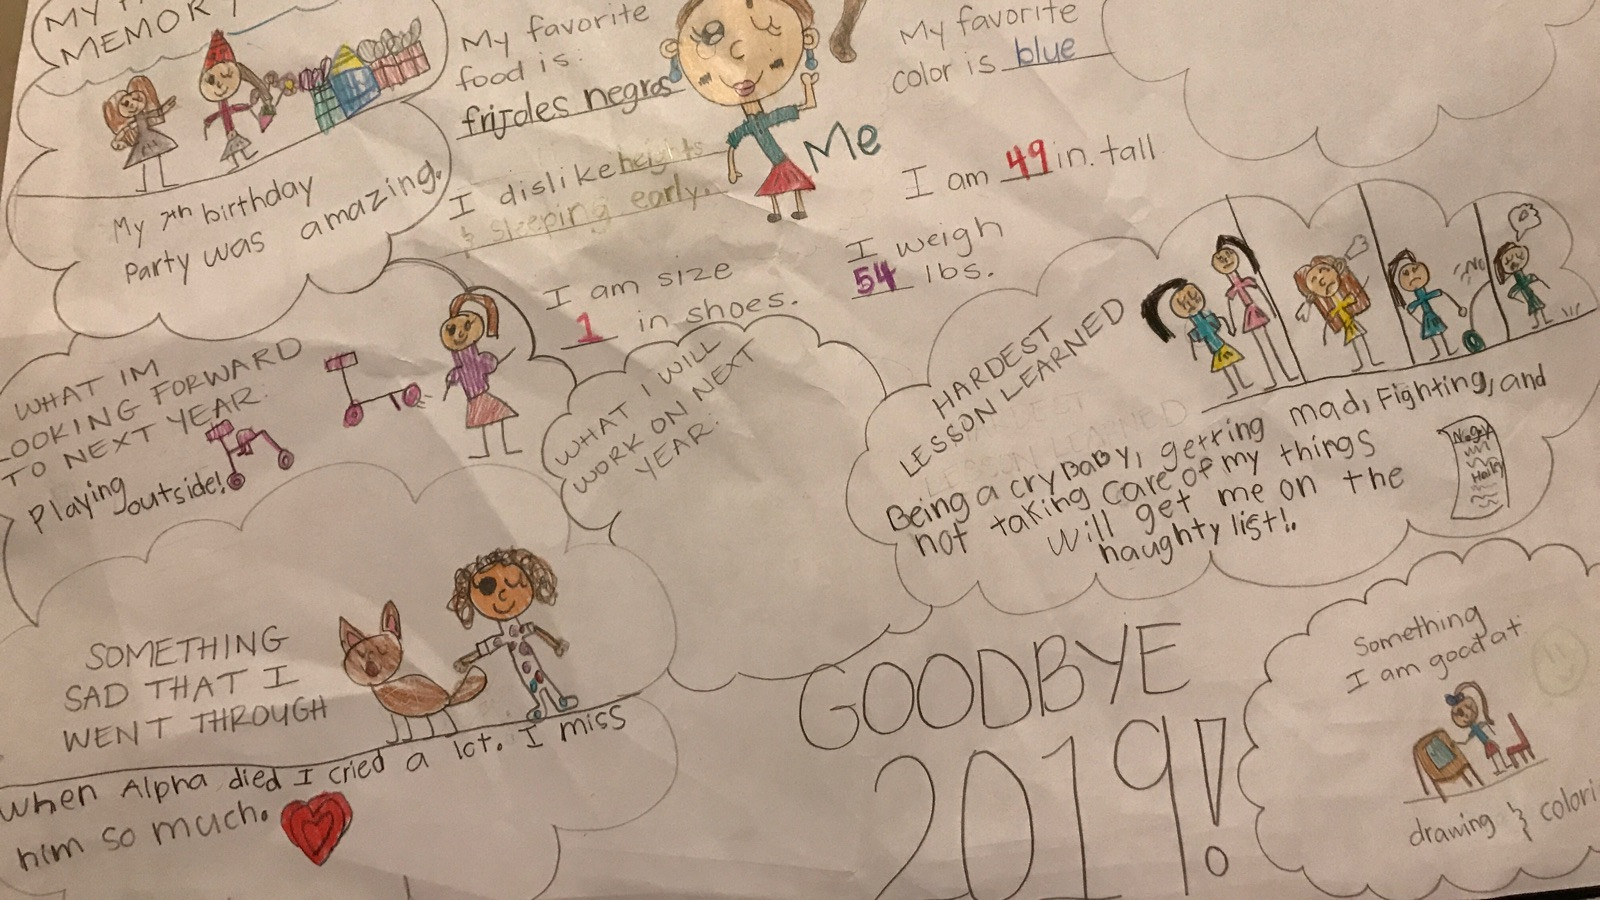 MY
MEMORY
My 7th birthday
Party was amazing.
My favorite
food is:
frijoles negros
I dislike heights
& sleeping early.
I am size
1 in shoes.
Me
My favorite
color is blue
I am 49 in. tall
I weigh
54 lbs.
WHAT IM
LOOKING FORWARD
TO NEXT YEAR:
Playing
outside!
WHAT I WILL
WORK ON NEXT
YEAR:
HARDEST
LESSON LEARNED
Being a cry Baby, getting mad, Fighting, and
not taking care of my things
will get me on the
naughty list!.
SOMETHING
SAD THAT I
WENT THROUGH
When Alpha died I cried a lot. I miss
him so much.
GOODBYE
2019!
Something
I am good at
drawing & colori